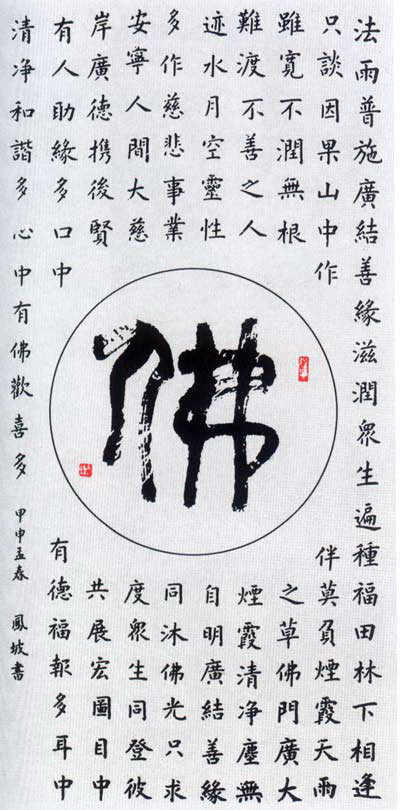 法雨普施廣結善緣滋潤眾生遍種福田林下相逢
只談因果山中作
伴莫負煙霞天雨
雖寬不潤無根
之草佛門廣大
難渡不善之人
煙霞清净塵無
迹水月空靈性
自明廣結善緣
多作慈悲事業
同沐佛光只求
安寧人間大慈
度眾生同登彼
岸廣德携後賢
共展宏圖目中
有人助緣多口中
有德福報多耳中
清净和諧多心中有佛歡喜多
甲申孟春 鳳坡書
佛